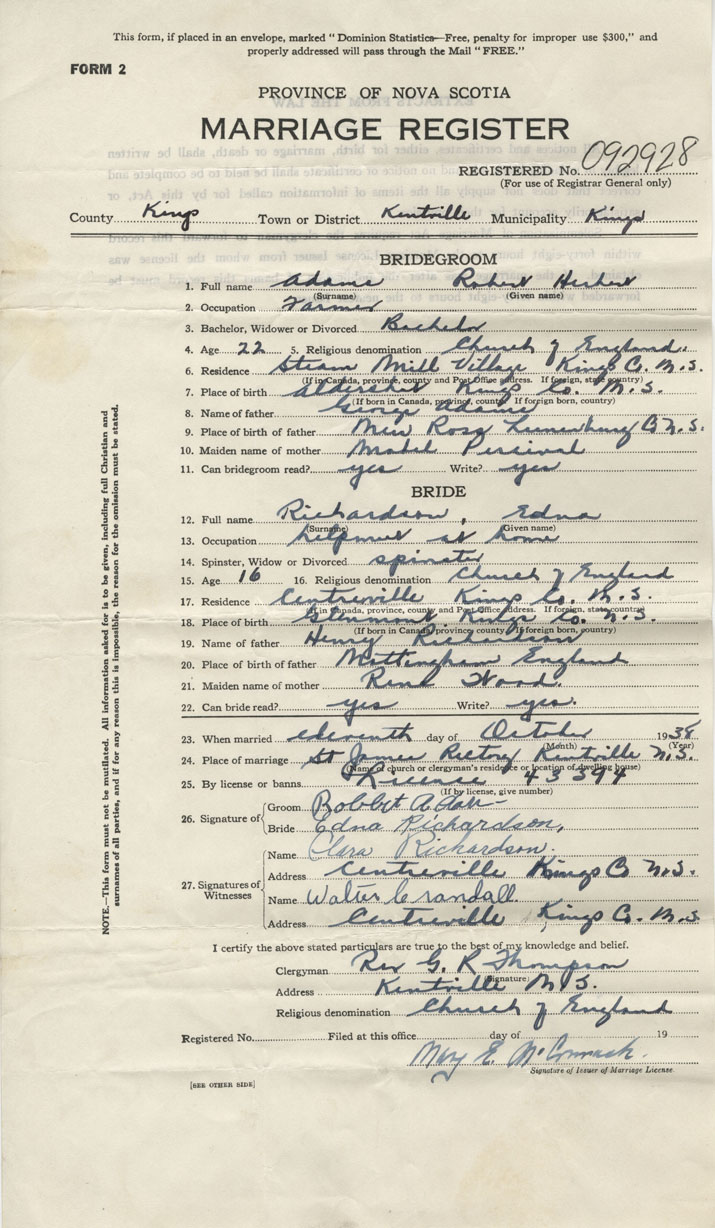 This form, if placed in an envelope, marked "Dominion Statistics—Free, penalty for improper use $300," and
properly addressed will pass through the Mail "FREE."
FORM 2
PROVINCE OF NOVA SCOTIA
MARRIAGE REGISTER
REGISTERED No. 092928
(For use of Registrar General only)
County Kings Town or District Kentville Municipality Kings
BRIDEGROOM
1. Full name Adams Robert Herbert
(Surname) (Given name)
2. Occupation Farmer
3. Bachelor, Widower or Divorced Bachelor
4. Age 22 5. Religious denomination Church of England
6. Residence Steam Mill Village Kings Co. N.S.
(If in Canada, province, county and Post Office address. If foreign, state country)
7. Place of birth Aldershot Kings Co. N.S.
(If born in Canada, province, county. If foreign born, country)
8. Name of father George Adams
9. Place of birth of father New Ross Lunenburg Co N.S.
10. Maiden name of mother Mabel Percival
11. Can bridegroom read? yes Write? yes
BRIDE
12. Full name Richardson, Edna
(Surname) (Given name)
13. Occupation helpmeet at home
14. Spinster, Widow or Divorced spinster
15. Age 16 16. Religious denomination Church of England
17. Residence Centreville Kings Co. N.S.
(If in Canada, province, county and Post Office address. If foreign, state country)
18. Place of birth Glenmont Kings Co. N.S.
(If born in Canada province county If foreign born, country)
19. Name of father Henry Richardson
20. Place of birth of father Nottingham England
21. Maiden name of mother Rena Wood
22. Can bride read? yes Write? yes.
23. When married eleventh day of October 1938
(Month) (Year)
24. Place of marriage St James Rectory Kentville N.S.
(Name of church or clergyman's residence or location of dwelling house)
25. By license or banns License 43394
(If by license, give number)
26. Signature of
Groom Robert Adams
Bride Edna Richardson,
27. Signatures of Witnesses
Name Clara Richardson.
Address Centreville Kings Co N.S.
Name Walter Crandall
Address Centreville Kings Co. N.S
I certify the above stated particulars are true to the best of my knowledge and belief.
Clergyman Rev G. R Thompson
(Signature)
Address Kentville N.S.
Religious denomination Church of England
Registered No. Filed at this office day of 19
Mary E. McCormack.
Signature of Issuer of Marriage License
[SEE OTHER SIDE]
NOTE.—This form must not be mutilated. All information asked for is to be given, including full Christian and
surnames of all parties, and if for any reason this is impossible, the reason for the omission must be stated.